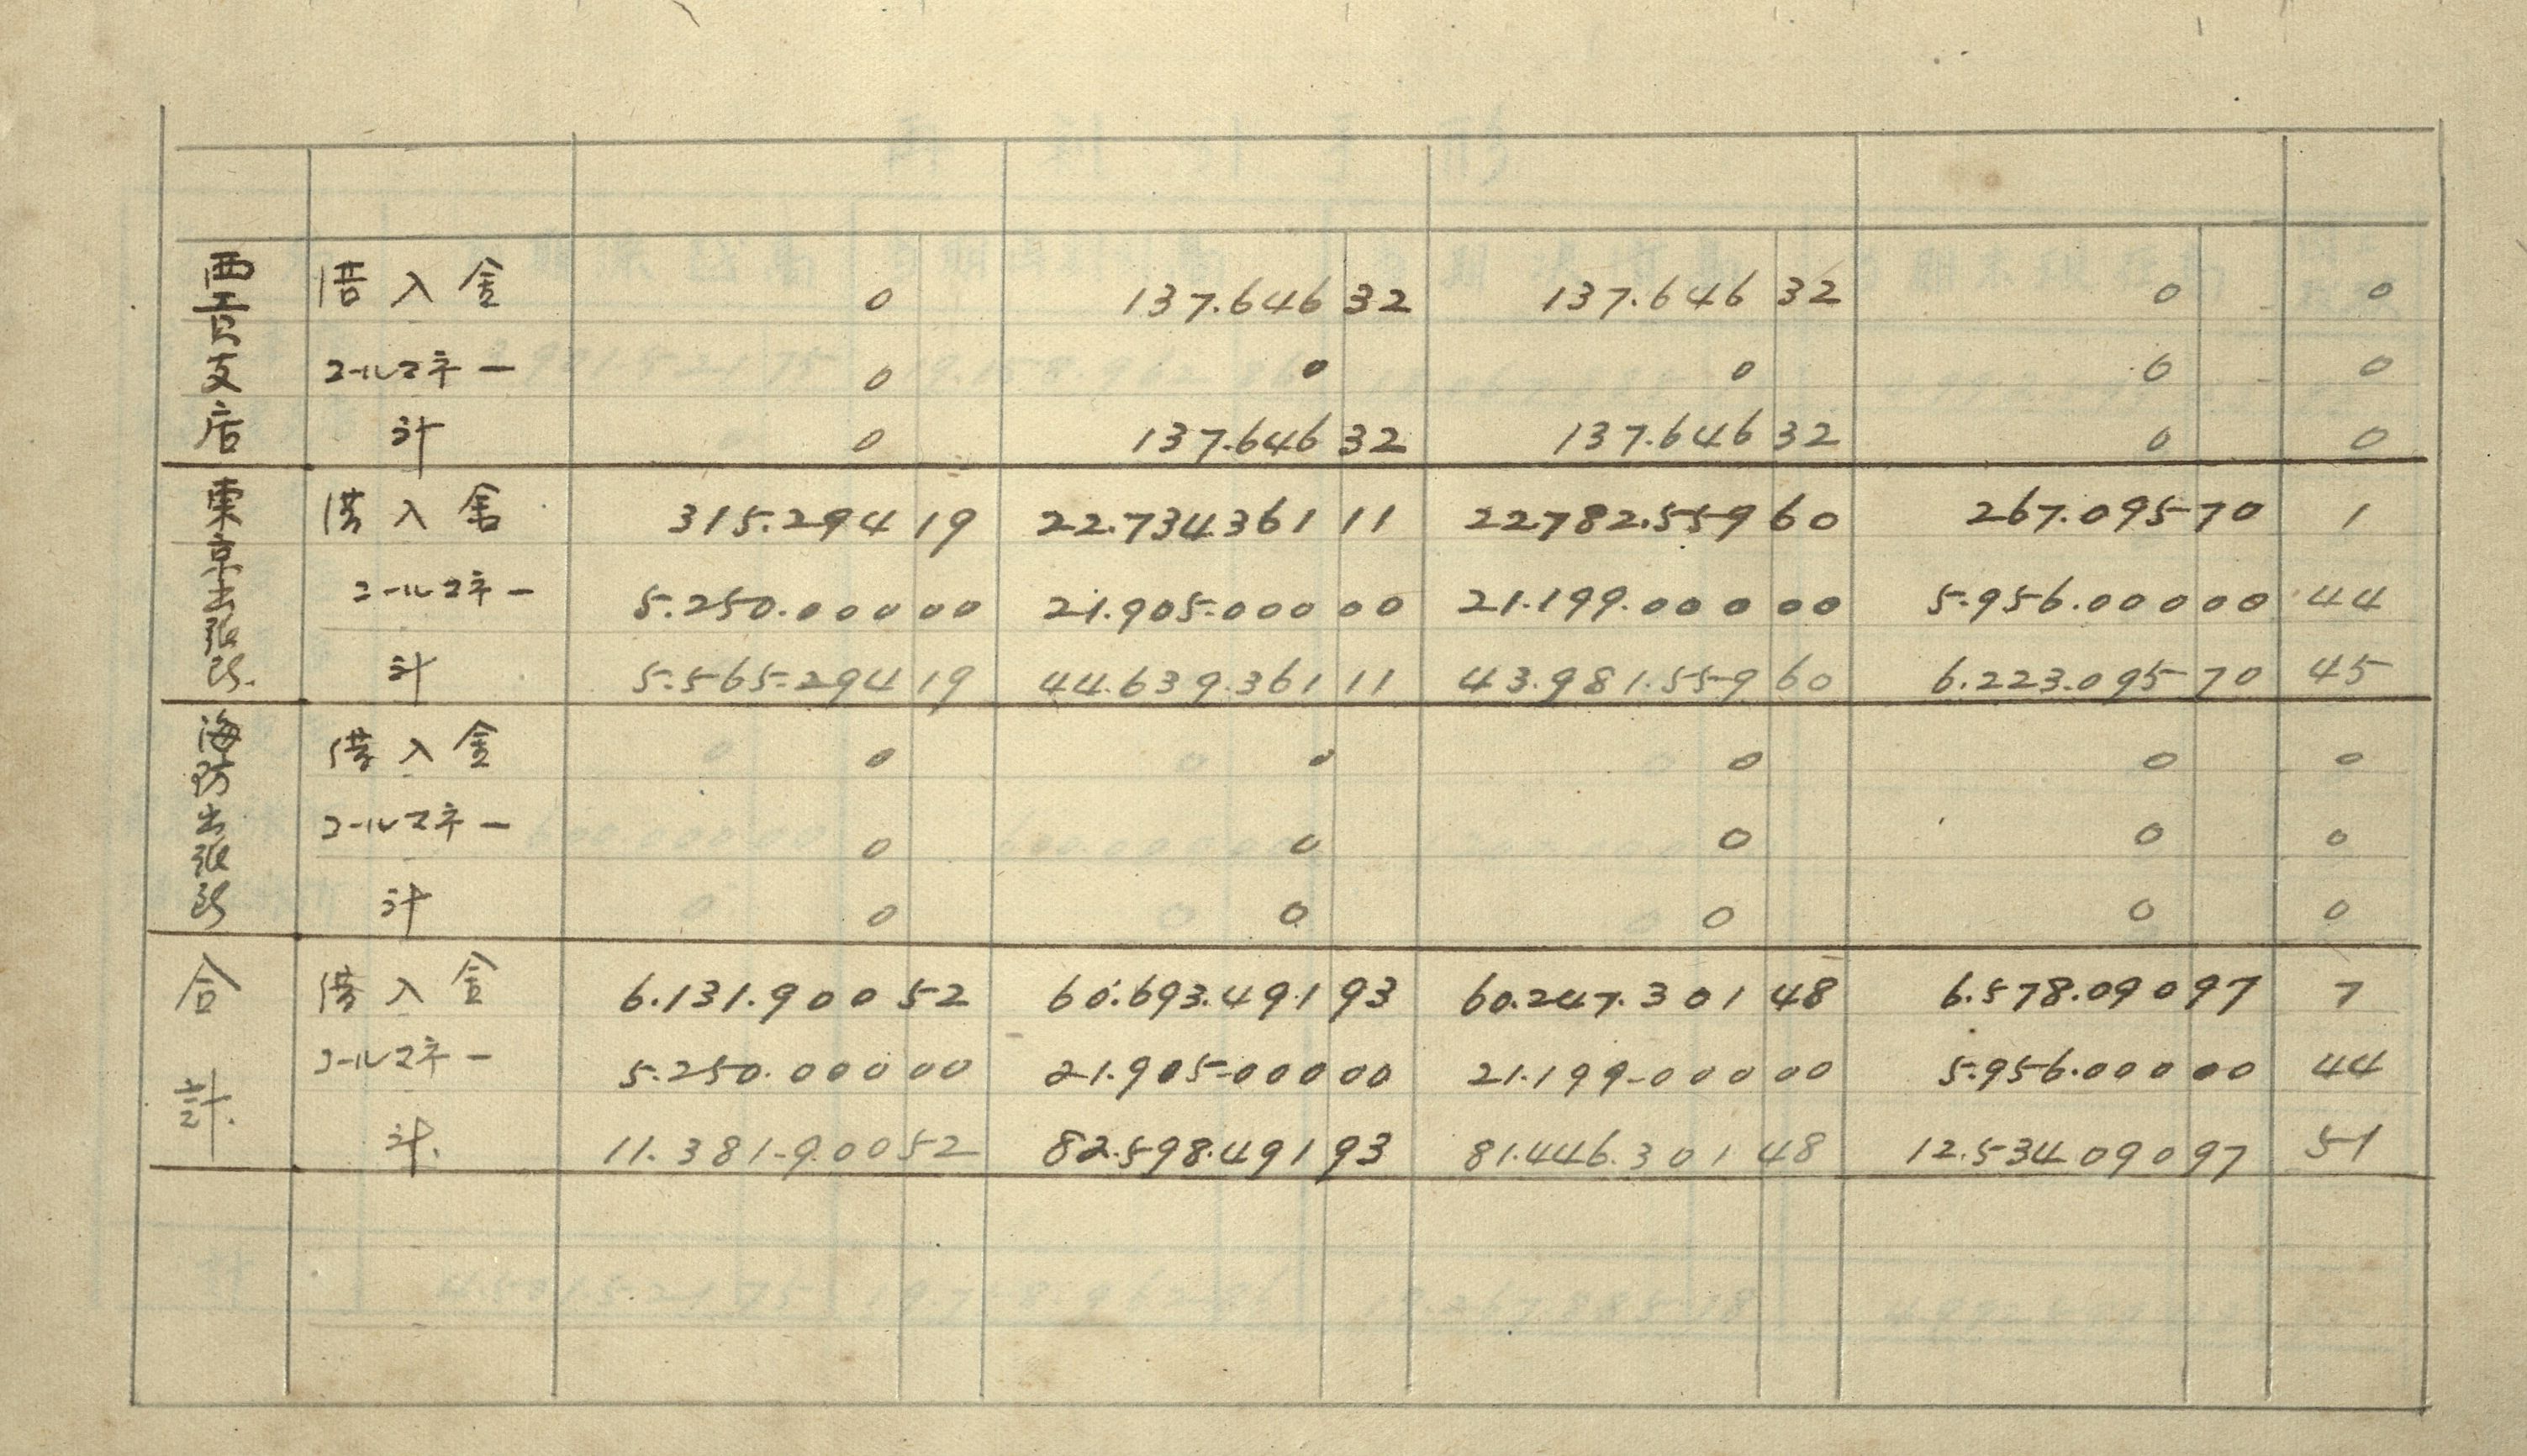 西貢支店 借入金 0 137.646 32 137.646 32 0 0
コールマネー 0 0 0 0 0
計 0 137.646 32 137.646 32 0 0
東京出張所 借入金 315.294 19 22.734.361 11 22.782.559 60 267.095 70 1
コールマネー 5.250.000 00 21.905.000 00 21.199.000 00 5.956.000 00 44
計 5.565.294 19 44.639.361 11 43.981.559 60 6.223.095 70 45
海防出張所 借入金 0 0 0 0 0
コールマネー 0 0 0 0 0
計 0 0 0 0 0
合計 借入金 6.131.900 52 60.693.491 93 60.247.301 48 6.578.090 97 7
コールマネー 5.250.000 00 21.905.000 00 21.199.000 00 5.956.000 00 44
計 11.381.900 52 82.598.491 93 81.446.301 48 12.534.090 97 51